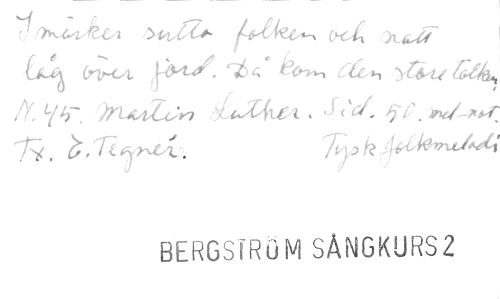 I mörker sutto folken och natt
låg över jord. Då kom den store tolken,
N. 45. Martin Luther. Sid. 50. mel-not.
Tx. E. Tegnér. Tysk folkmelodi
BERGSTRÖM SÅNGKURS 2